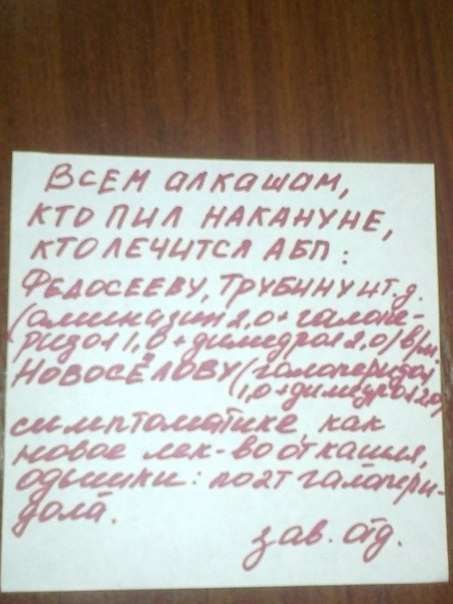 ВСЕМ АЛКАШАМ,
КТО ПИЛ НАКАНУНЕ,
КТО ЛЕЧИТСЯ АБП:
ФЕДОСЕЕВУ, ТРУБИНУ и т. д.
(аминазин 2,0 + галопе-
ридол 1,0 + димедрол 2,0) в/м.
НОВОСЁЛОВУ (галоперидол
1,0 + димедрол 2,0)
симптоматике, как
новое лек-во от кашля,
одышки: по 2т галопери-
дола.
зав. отд.